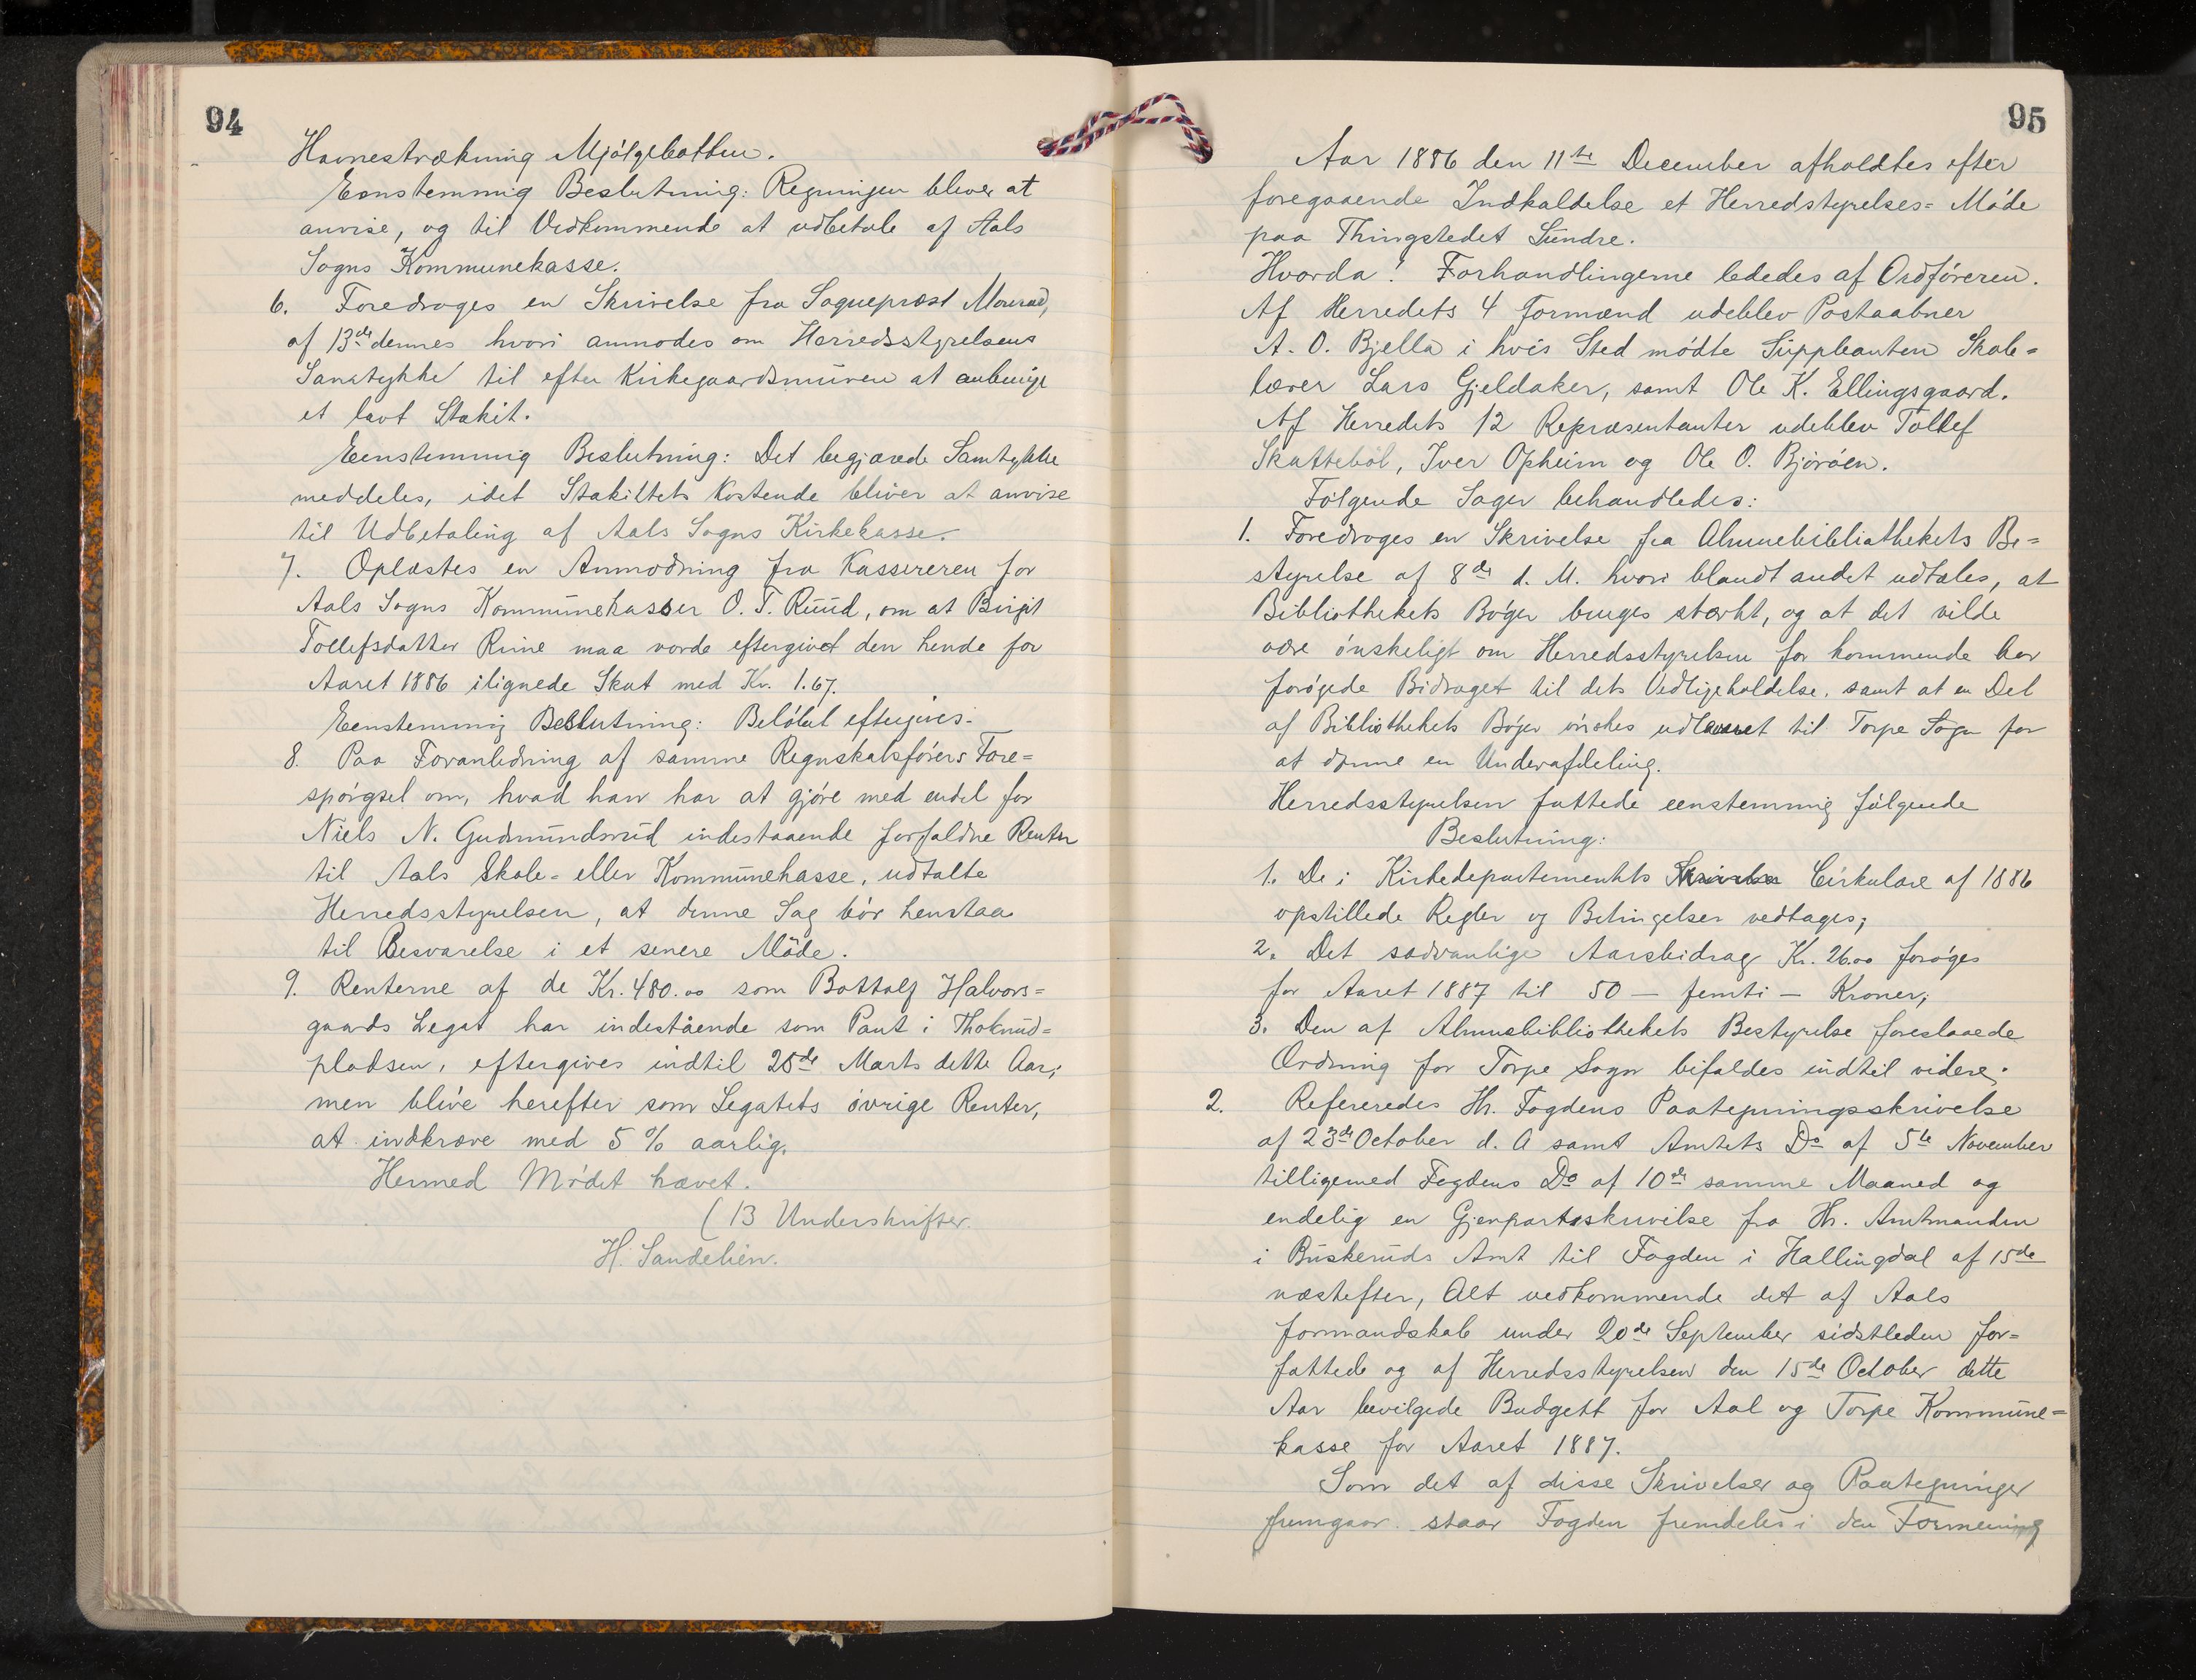 94
Havnestrækning Mjölgebotten.
Eenstemmig Beslutning: Regningen bliver at
anvise, og til Vedkommende at udbetale af Aals
Sogns Kommunekasse.
6. Foredroges en Skrivelse fra Sognepræst
af 13de dennes hvori anmodes om Herredsstyrelsens
Samtykke til efter Kirkegaardsmuren at anbringe
et lavt Stakit.
Eenstemmig Beslutning: Det begjærede Samtykke
meddeles, idet Stakittets Kostende bliver at anvise
til Udbetaling af Aals Sogns Kirkekasse.
7. Oplæstes en Anmodning fra Kassereren for
Aals Sogns Kommunekasser O. T. Ruud, om at Birgit
Tollefsdatter Rime maa vorde eftergivet den hende for
Aaret 1886 ilignede Skat med Kr. 1.67.
Eenstemmig Beslutning: Belöbet eftergives.
8. Paa Foranledning af samme Regnskabsförers Fore=
spörgsel om, hvad han har at gjöre med endel for
Niels N. Gudmundsrud indestaaende forfaldne Renter
til Aals Skole- eller Kommunekasse, udtalte
Herredsstyrelsen, at denne Sag bör henstaa
til Besvarelse i et senere Möde.
9. Renterne af de Kr. 480.00 som Bottolf Halvors=
gaards Legat har indestående som Pant i Thoknud=
pladsen, eftergives indtil 25de Marts dette Aar;
men blive herefter som Legatets övrige Renter,
at indkræve med 5 % aarlig.
Hermed Mödet hævet.
(13 Underskrifter.
H. Sandelien.
95
Aar 1886 den 11te December afholdtes efter
foregaaende Indkaldelse et Herredstyrelses= Möde
paa Thingstedet Sundre.
Hvorda! Forhandlingerne lededes af Ordföreren.
Af Herredets 4 Formænd udeblev Postaabner
A. O. Bjella i hvis Sted mödte Suppleanten Skole=
lærer Lars Gjeldaker, samt Ole K. Ellingsgaard.
Af Herredets 12 Repræsentanter udeblev Tollef
Skatteböl, Iver Opheim og Ole O. Björöen.
Fölgende Sager behandledes:
1. Foredroges en Skrivelse fra Almuebibliothekets Be=
styrelse af 8de d. M. hvori blandt andet udtales, at
Bibliothekets Böger bruges stærkt, og at det vilde
være önskeligt om Herredsstyrelsen for kommende Aar
forögede Bidraget til dets Vedligeholdelse, samt at en Del
af Bibliothekets Böger önskes udlaanet til Torpe Sogn for
at danne en Underafdeling.
Herredsstyrelsen fattede eenstemmig fölgende
Beslutning:
1. De i Kirkedepartementets Skrivelse Cirkulære af 1886
opstillede Regler og Betingelser vedtages;
2. Det sædvanlige Aarsbidrag Kr. 26.00 foröges
for Aaret 1887 til 50 — femti — Kroner;
3. Den af Almuebibliothekets Bestyrelse foreslaaede
Ordning for Torpe Sogn bifaldes indtil videre.
2. Refereredes Hr. Fogdens Paategningsskrivelse
af 23de October d. A samt Amtets Do af 5te November
tilligemed Fogdens Do af 10de samme Maaned og
endelig en Gjenpartsskrivelse fra Hr. Amtmanden
i Buskeruds Amt til Fogden i Hallingdal af 15de
næstefter, Alt vedkommende det af Aals
formandskab under 20de September sidstleden for=
fattede og af Herredsstyrelsen den 15de October dette
Aar bevilgede Budgett for Aal og Torpe Kommune=
kasse for Aaret 1887.
Som det af disse Skrivelser og Paategninger
fremgaar staar Fogden fremdeles i den Formening